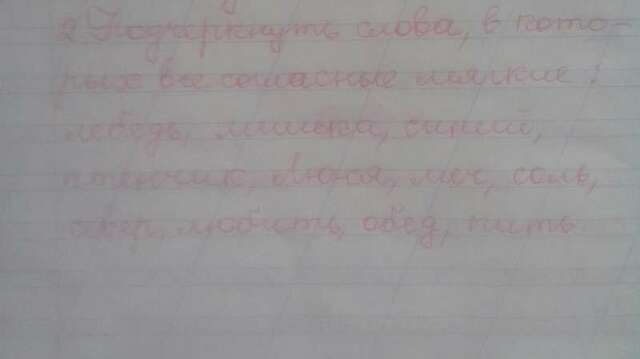 2. Подчеркнуть слова, в кото-
рых все согласные мягкие:
лебедь, мишка, синий,
птенчик, Люся, мяч, соль,
любить, обед, пить